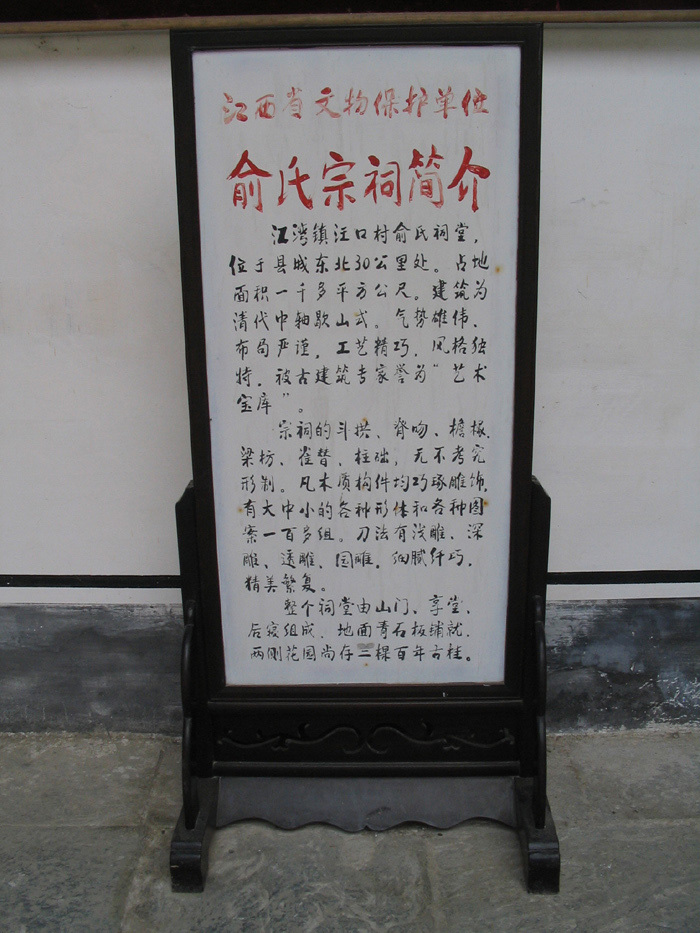 江西省文物保护单位
俞氏宗祠简介
江湾镇汪口村俞氏祠堂，
位于县城东北30公里处。占地
面积一千多平方公尺。建筑为
清代中轴歇山式。气势雄伟、
布局严谨，工艺精巧，风格独
特，被古建筑专家誉为“艺术
宝库”。
宗祠的斗拱、脊吻、檐椽、
梁枋、雀替、柱础，无不考究
形制。凡木质构件均巧琢雕饰，
有大中小的各种形体和各种图
案一百多组。刀法有浅雕、深
雕、透雕、园雕，细腻纤巧，
精美繁复。
整个祠堂由山门、享堂、
后寝组成，地面青石板铺就，
两侧花园尚存三棵百年古桂。